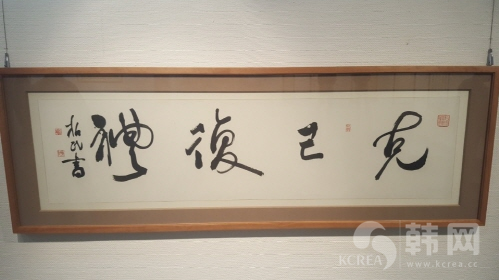 克己復禮
拓民書
韩网
KCREA
www.kcrea.cc